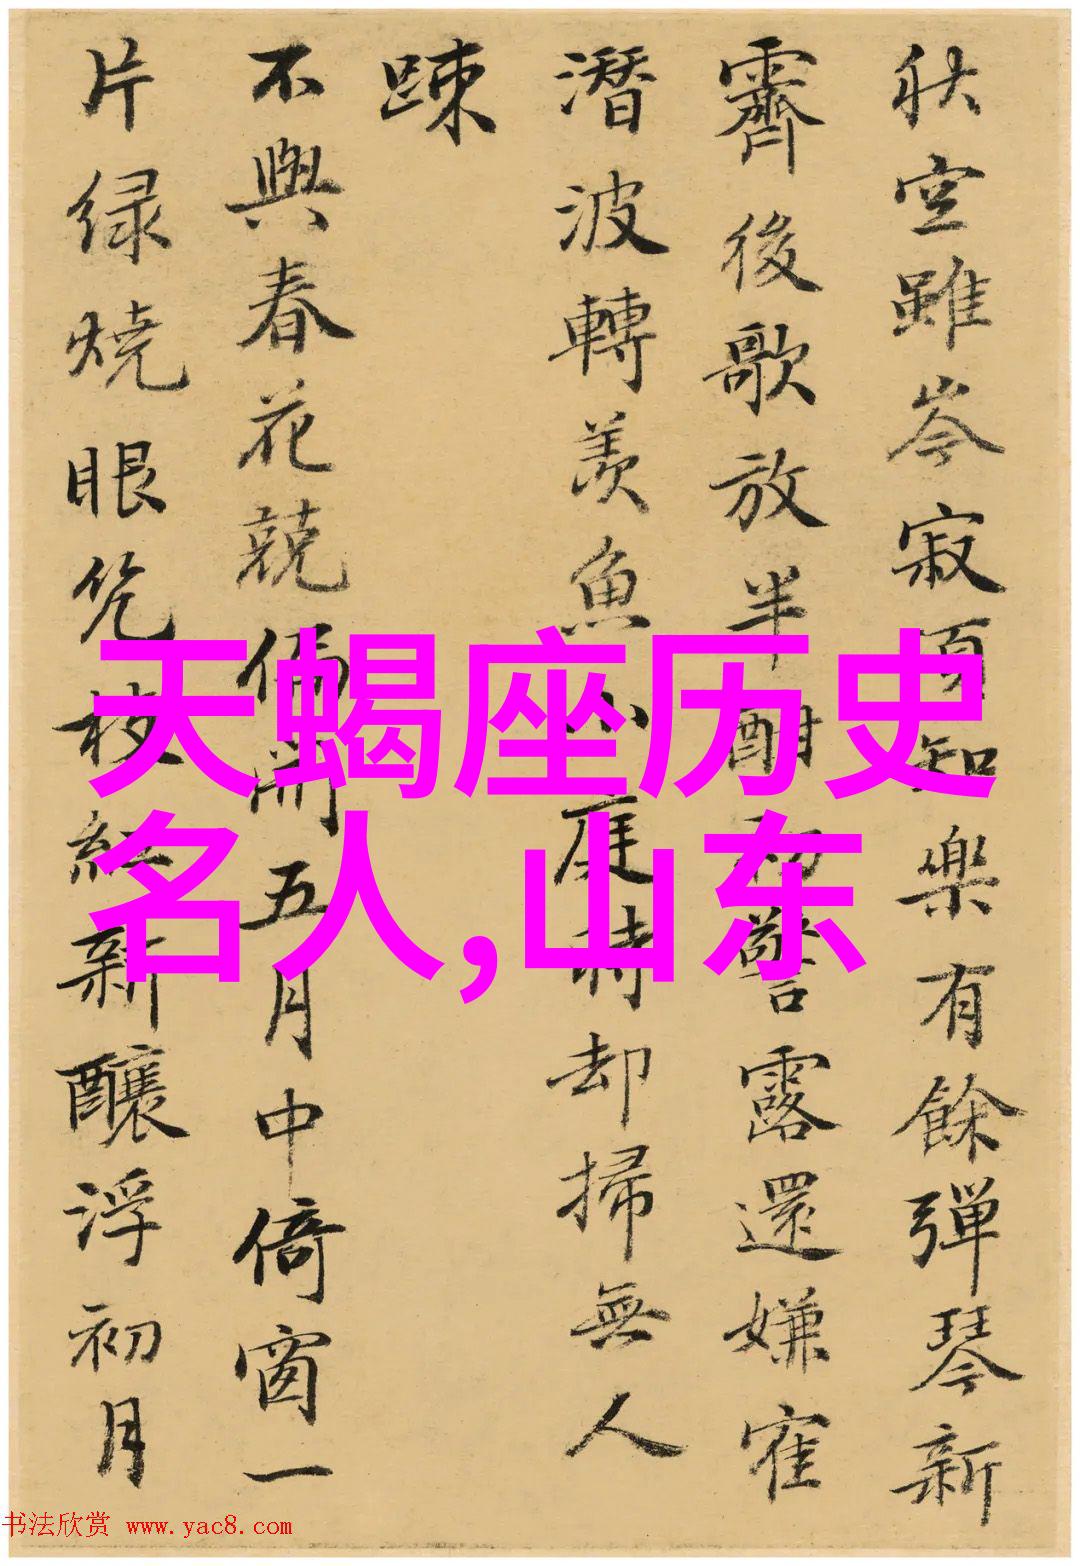 秋空雖岑寂頂知樂有餘彈琴新
霽後歌放半酣初警露還嫌寉
潛波轉羨魚小庭時却掃無人
踈
不與春花競偏開五月中倚窗一
片绿燒眼幾枝紅新釀浮初月
天蝎座历史
名人,山东
书法欣赏 www.yac8.com